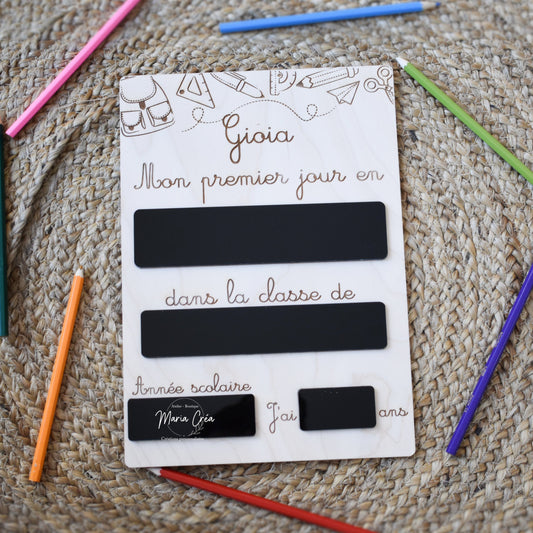 Gioia
Mon premier jour en
dans la classe de
Année scolaire
Atelier - Boutique
Maria Géa
J'ai ans